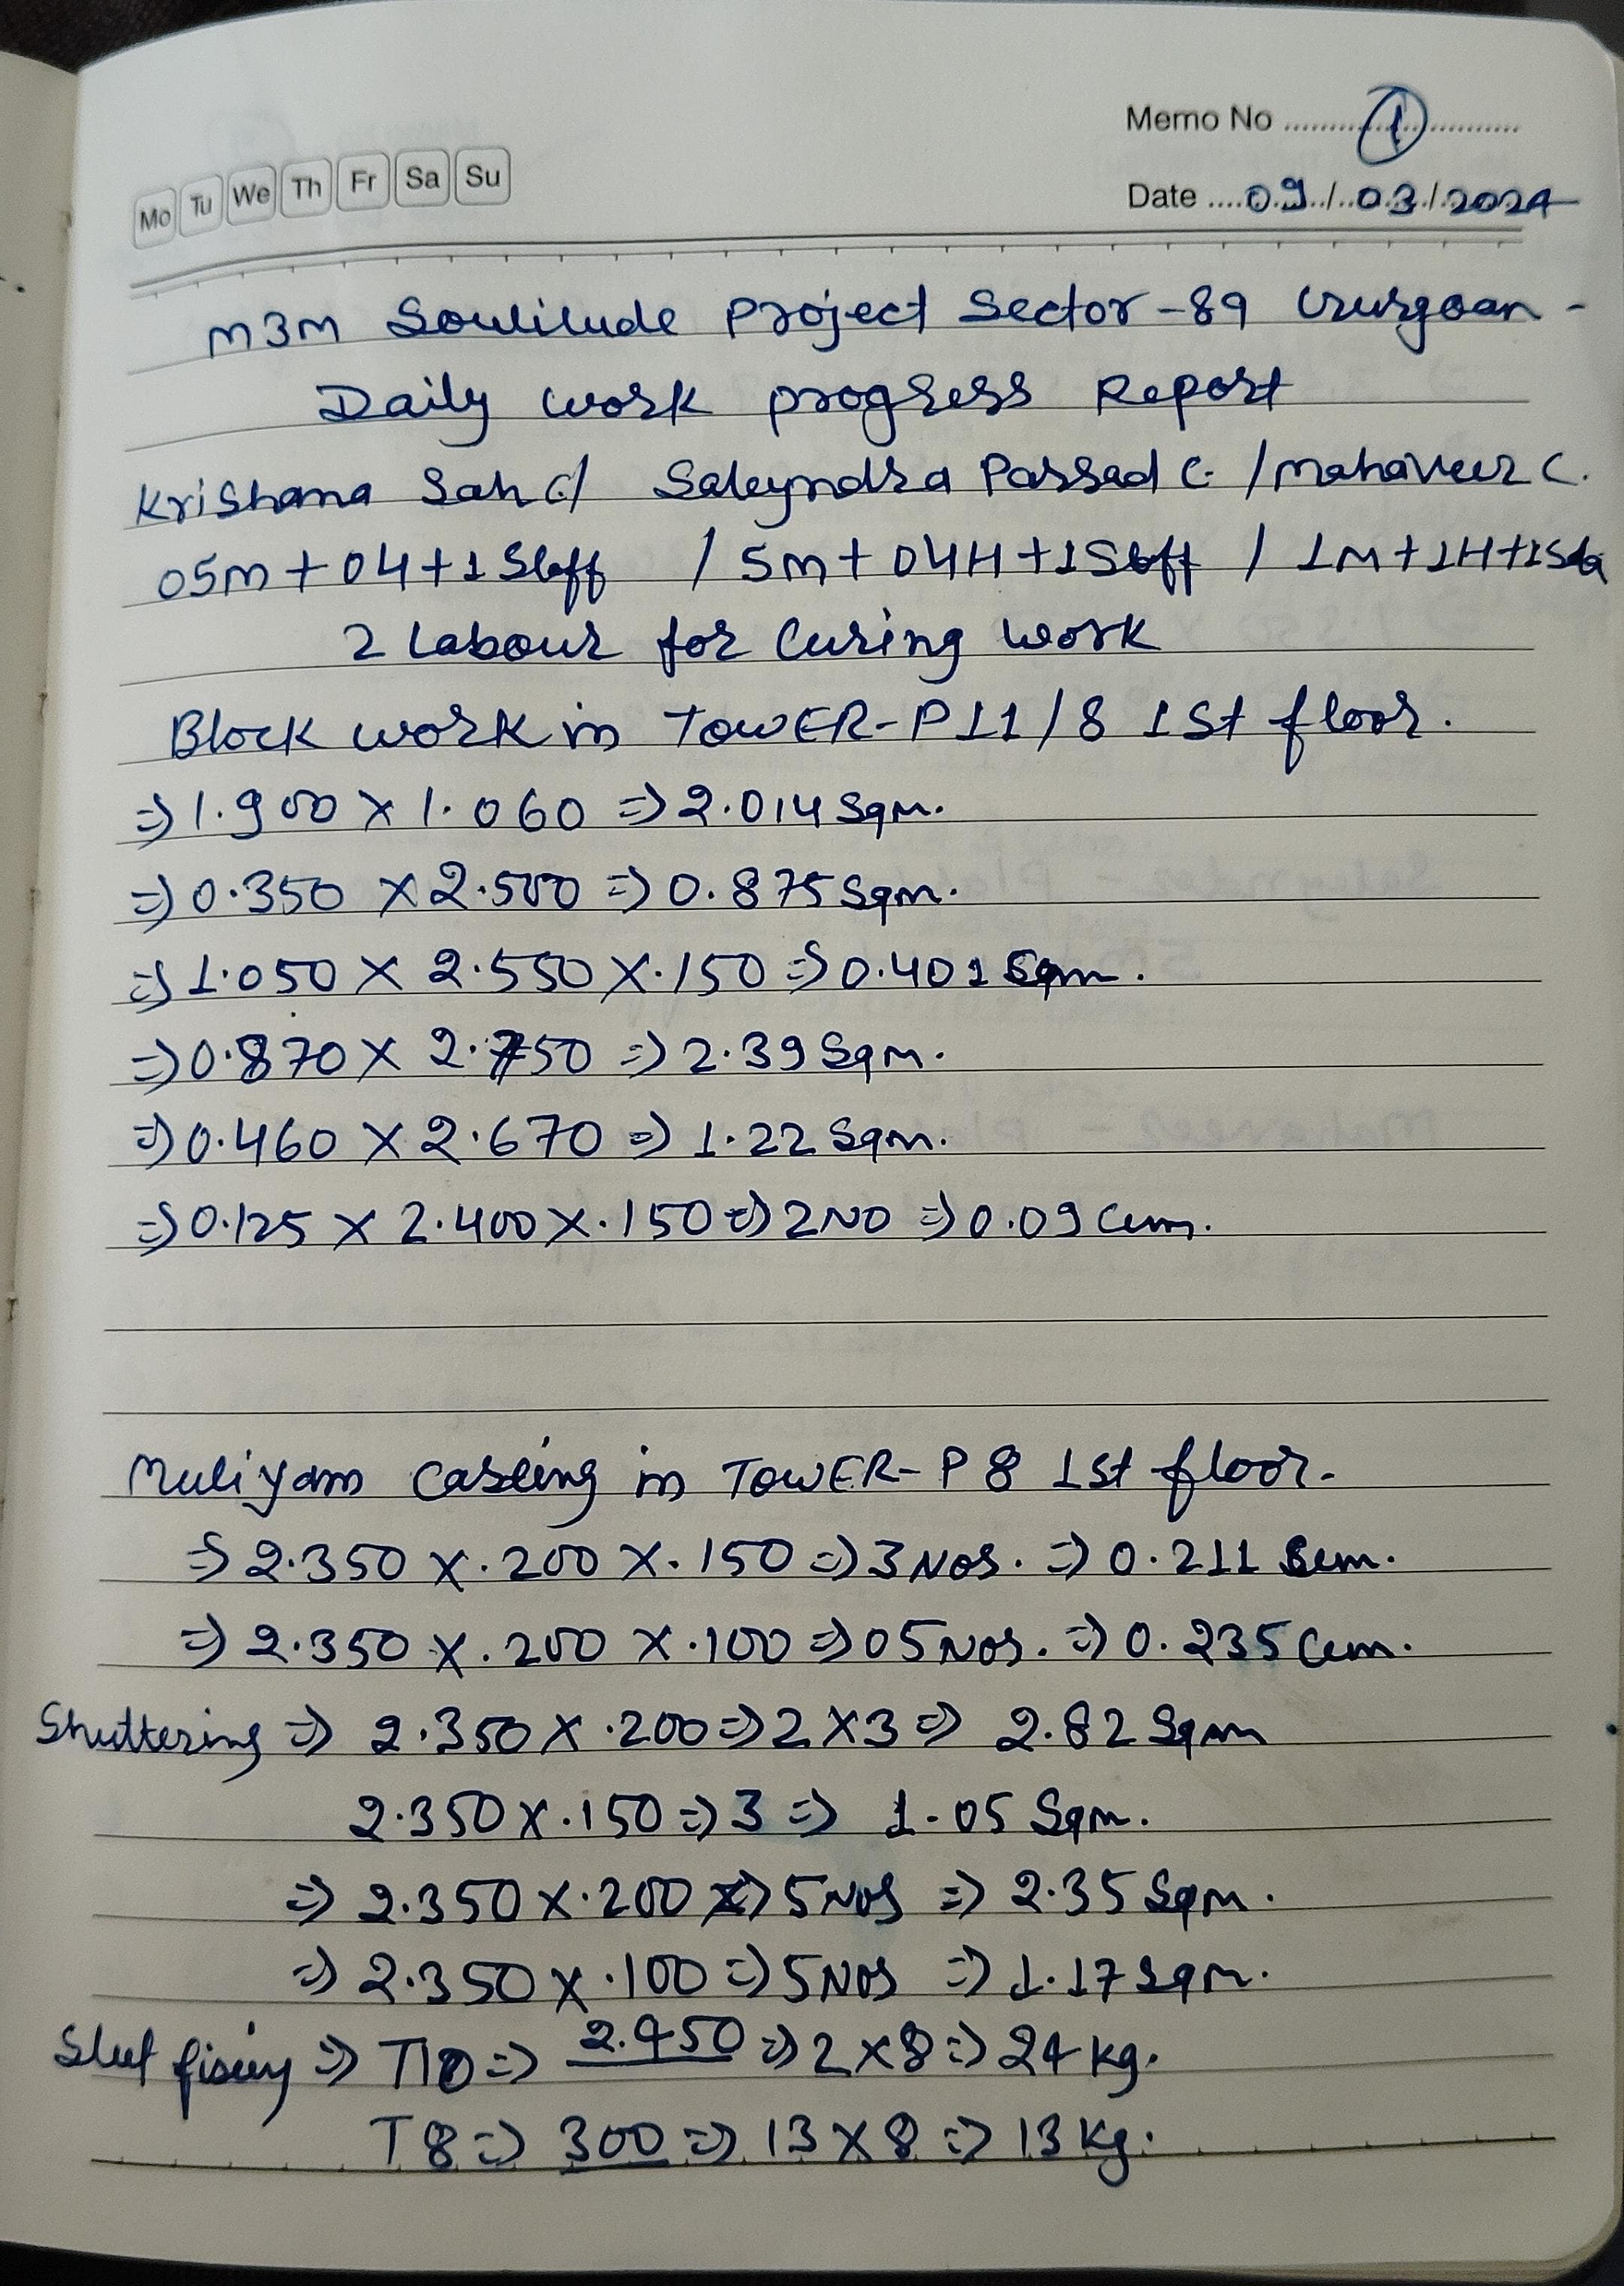 Memo No ........(1)............
Mo Tu We Th Fr Sa Su
Date ....09../..03./.2024
M3M Soulilude Project Sector-89 Gurgoan -
Daily work progress Report
Krishana Sah C/ Saleyndra Parsad C. /Mahaveer C.
05m + 04 + 1 Staff / 5m + 04H + 1 Staff / 1M + 1H + 1 Sta
2 Labour for Curing work
Block work in TOWER-P11/8 1st floor.
⇒ 1.900 X 1.060 ⇒ 2.014 Sqm.
⇒ 0.350 X 2.500 ⇒ 0.875 Sqm.
⇒ 1.050 X 2.550 X .150 ⇒ 0.401 Sqm.
⇒ 0.870 X 2.750 ⇒ 2.39 Sqm.
⇒ 0.460 X 2.670 ⇒ 1.22 Sqm.
⇒ 0.125 X 2.400 X .150 ⇒ 2 NO ⇒ 0.09 Cum.
Muliyam Casting in TOWER-P 8 1st floor.
⇒ 2.350 X .200 X .150 ⇒ 3 Nos. ⇒ 0.211 Cum.
⇒ 2.350 X .200 X .100 ⇒ 05 Nos. ⇒ 0.235 Cum.
Shuttering ⇒ 2.350 X .200 ⇒ 2 X 3 ⇒ 2.82 Sqm
2.350 X .150 ⇒ 3 ⇒ 1.05 Sqm.
⇒ 2.350 X .200 ⇒ 5 Nos ⇒ 2.35 Sqm.
⇒ 2.350 X .100 ⇒ 5 Nos ⇒ 1.17 Sqm.
T10 ⇒ 2.450 ⇒ 2 X 8 ⇒ 24 kg.
T8 ⇒ 300 ⇒ 13 X 8 ⇒ 13 Kg.